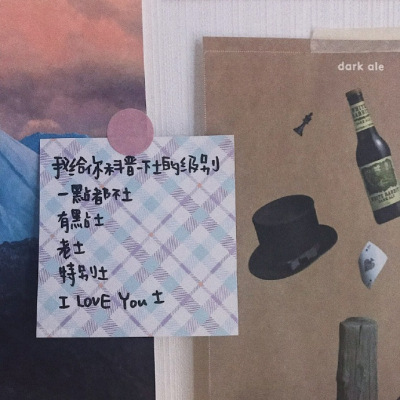 我给你科普一下土的级别
一點都不土
有點土
老土
特别土
I LOVE You 土
dark ale